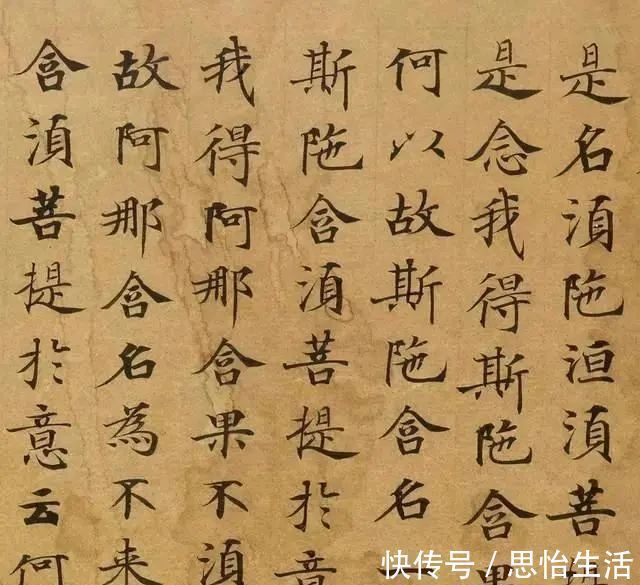 是名湏陁洹湏菩
是念我得斯陁含果
何以故斯陁含名
斯陁含湏菩提於意
我得阿那含果不湏
故阿那含名為不来
含湏菩提於意云何
快传号 / 思怡生活